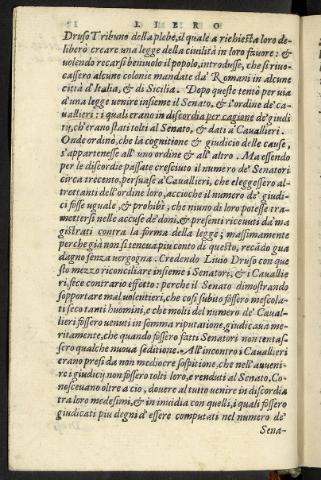 LIBRO
Druso Tribuno della plebe, il quale a richiesta loro de-
liberò creare una legge della ciuilità in loro fauore: &
uolendo recarsi beniuolo il popolo, introdusse, che si riuo-
cassero alcune colonie mandate da' Romani in alcune
città d'Italia, & di Sicilia. Dopo queste tentò per uia
d'una legge uenire insieme il Senato, & l'ordine de' ca-
uallieri: i quali erano in discordia per cagione de' giudi
tij, ch'erano stati tolti al Senato, & dati a' Cauallieri.
Onde ordinò, che la cognitione & giudicio delle cause,
s'appartenesse all'uno ordine & all'altro. Ma essendo
per le discordie passate cresciuto il numero de' Senatori
circa trecento, persuase a' Cauallieri, che eleggessero al-
trettanti dell'ordine loro, accioche il numero de' giudi-
ci fosse uguale, & prohibì, che niuno di loro potesse tra-
mettersi nelle accuse de' doni, & presenti riceuuti da' ma
gistrati contra la forma della legge; massimamente
perche già non si teneua piu conto di questo, recãdo gua
dagno senza uergogna. Credendo Liuio Druso con que
sto mezzo riconciliare insieme i Senatori, & i Cauallie
ri, fece contrario effetto: perche il Senato dimostrando
sopportare mal uolentieri, che così subito fossero mescola-
ti seco tanti huomini, e che molti del numero de' Caual-
lieri fossero uenuti in somma riputatione, giudicaua me-
ritamente, che quando fossero fatti Senatori non tentas-
sero qualche nuoua seditione. All'incontro i Cauallieri
erano presi da non mediocre sospitione, che nell'auueni-
re i giudicij non fossero tolti loro, e renduti al Senato. Co-
nosceuano oltre a cio, douere al tutto uenire in discordia
tra loro medesimi, & in inuidia con quelli, i quali fossero
giudicati piu degni d'essere computati nel numero de'
Sena-